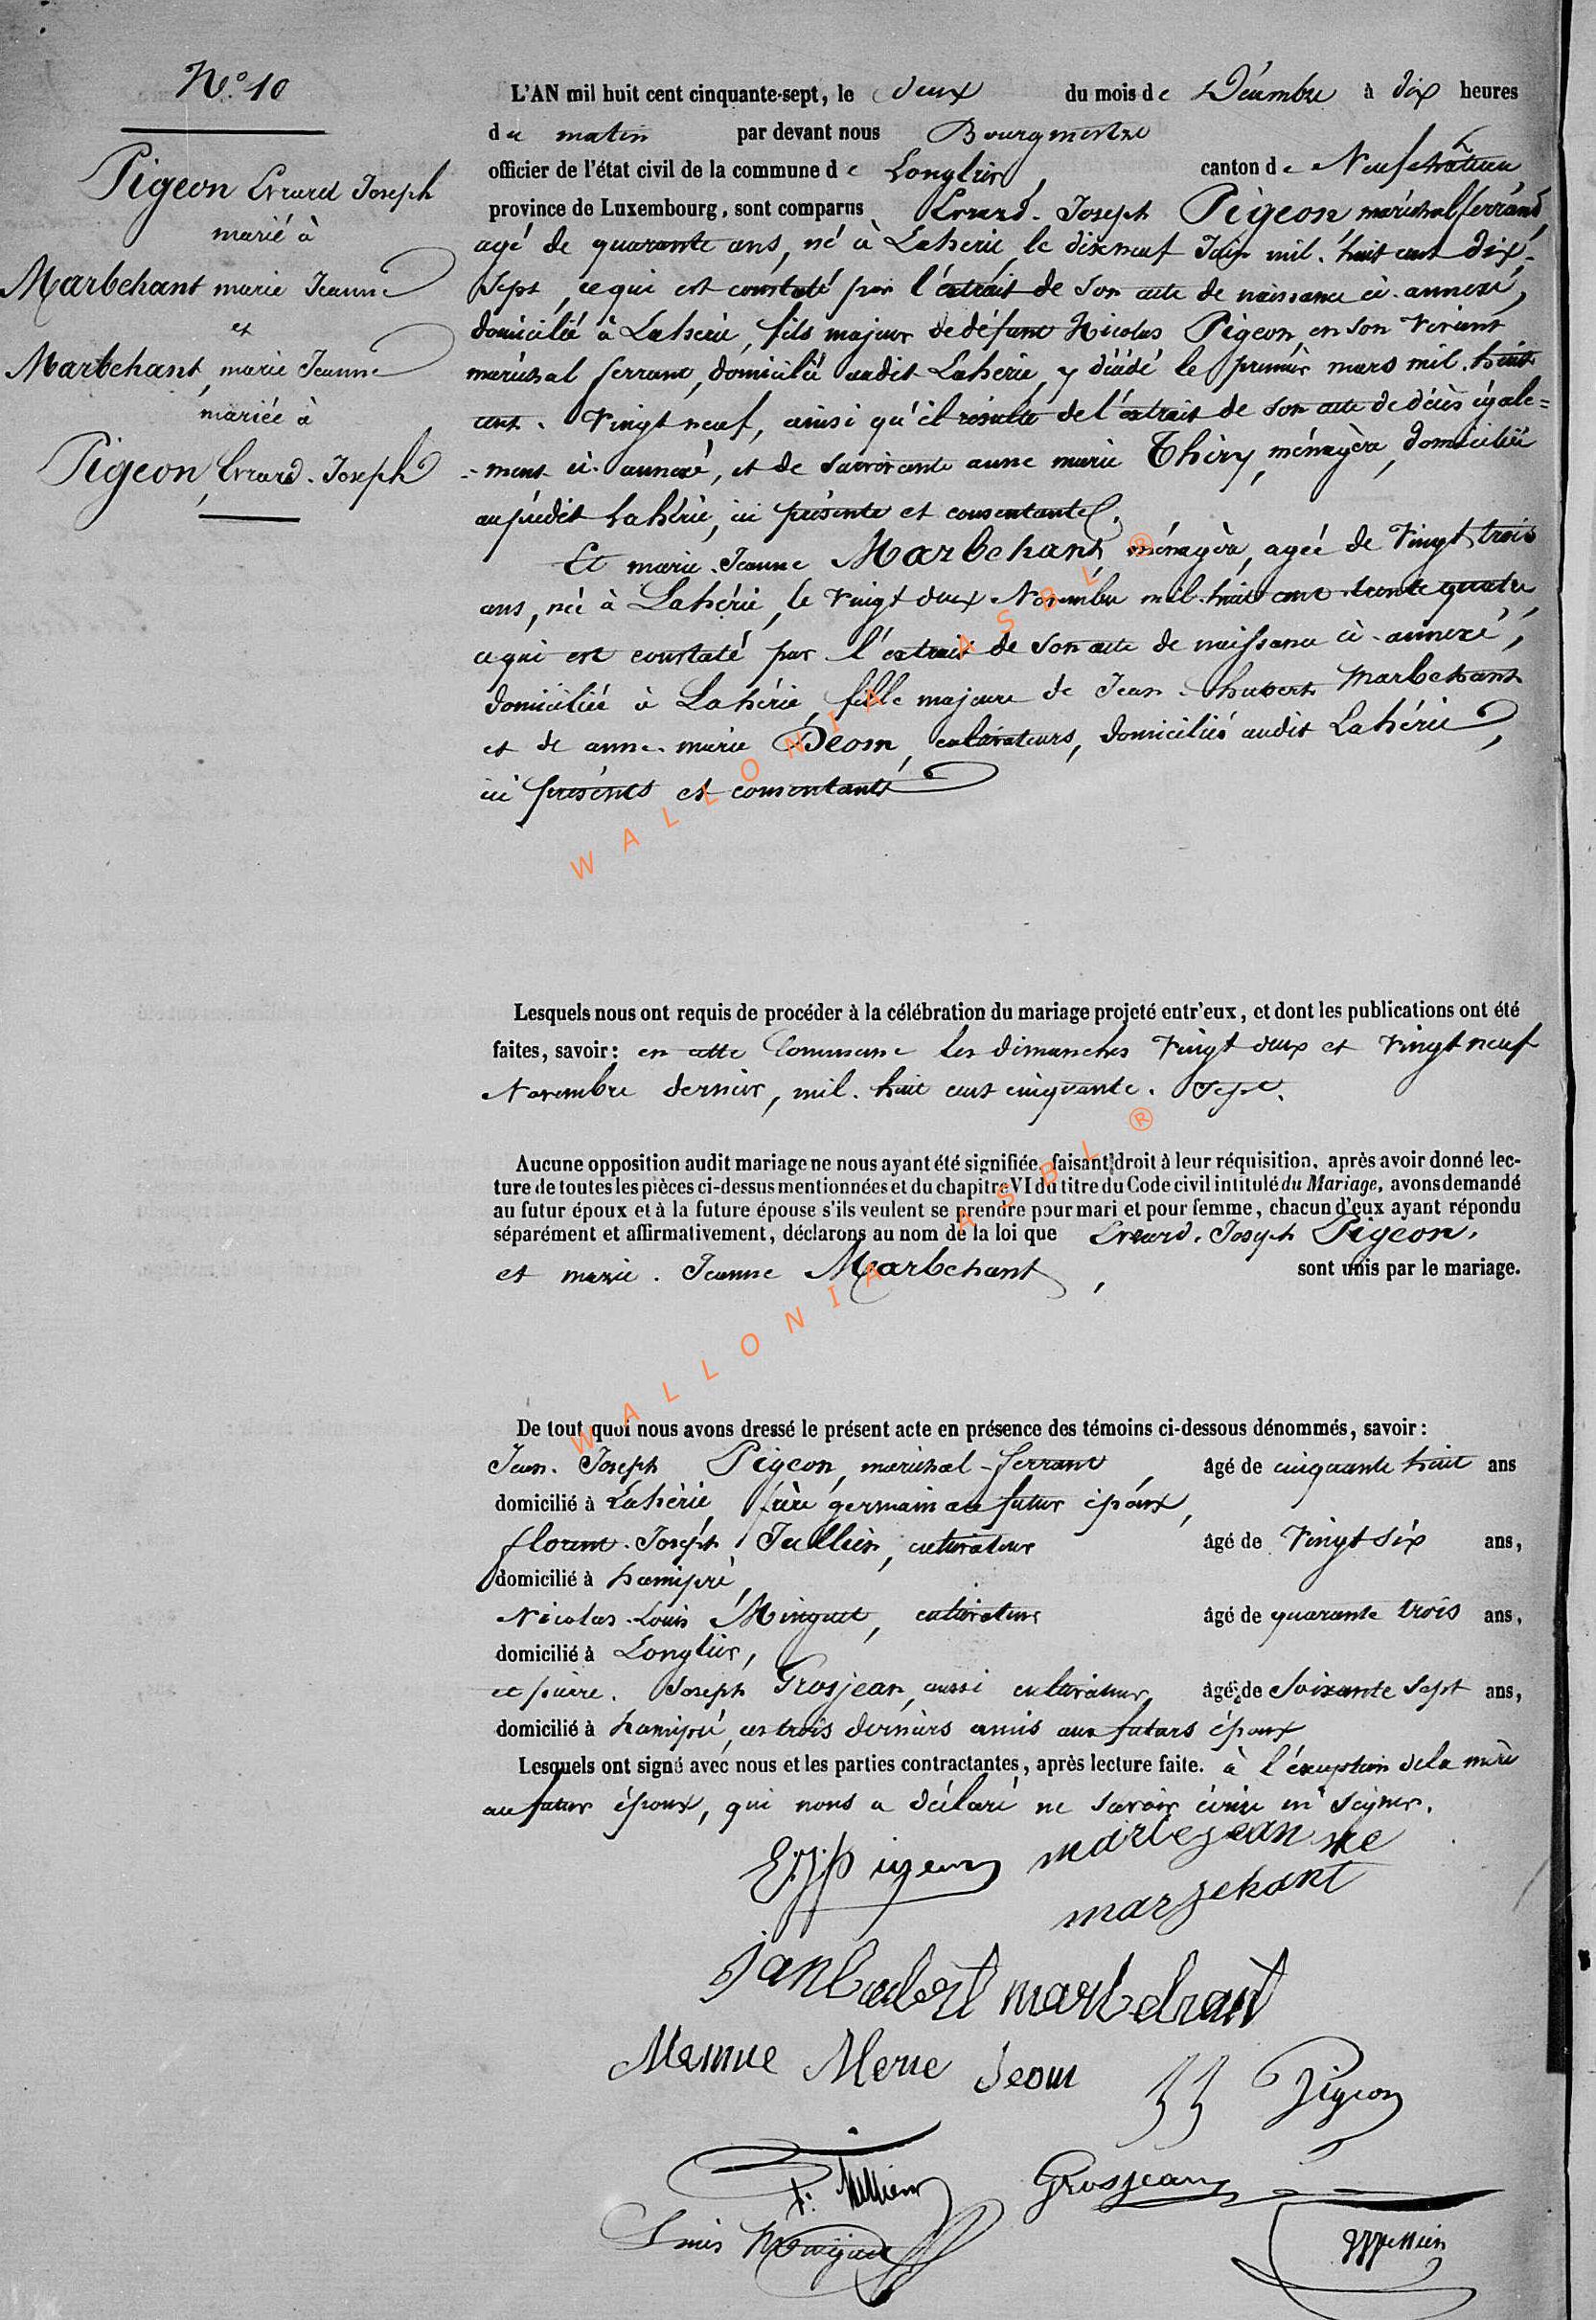 N.° 10
Pigeon Evrard Joseph
marié à
Marbehant marie Jeanne
et
Marbehant, marie Jeanne
mariée à
Pigeon, Evrard. Joseph
L'AN mil huit cent cinquante-sept, le deux du mois de Décembre à dix heures
du matin par devant nous Bourgmestre
officier de l'état civil de la commune de Longlier, canton de Neufchâteau
province de Luxembourg, sont comparus Evrard. Joseph Pigeon maréchal ferrant,
agé de quarante ans, né à Lahérie, le dixneuf Juin mil. huit cent dix-
sept, ce qui est constaté par l'extrait de son acte de naissance ci-annexé,
domicilié à Lahérie, fils majeur de défunt Nicolas Pigeon, en son vivant
maréchal ferrant, domicilié audit Lahérie, y décédé le premier mars mil. huit
cent. vingt neuf, ainsi qu'il résulte de l'extrait de son acte de décès égale=
-ment ci-annexé, et de survivante anne marie Thiry, ménagère, domiciliée
au susdit Lahérie, ici présente et consentante.
Et marie. Jeanne Marbehant, ménagère, agée de vingt trois
ans, née à Lahérie, le vingt deux Novembre mil. huit cent trente quatre,
ce qui est constaté par l'extrait de son acte de naissance ci-annexé,
domiciliée à Lahérie, fille majeure de Jean hubert Marbehant
et de anne. marie Deom, cultivateurs, domiciliés audit Lahérie,
ici présents et consentants
Lesquels nous ont requis de procéder à la célébration du mariage projeté entr'eux, et dont les publications ont été
faites, savoir: en cette Commune les dimanches vingt deux et vingt neuf
Novembre dernier, mil. huit cent cinquante. sept.
Aucune opposition audit mariage ne nous ayant été signifiée, faisant droit à leur réquisition, après avoir donné lec-
ture de toutes les pièces ci-dessus mentionnées et du chapitre VI du titre du Code civil intitulé du Mariage, avons demandé
au futur époux et à la future épouse s'ils veulent se prendre pour mari et pour femme, chacun d'eux ayant répondu
séparément et affirmativement, déclarons au nom de la loi que Evrard. Joseph Pigeon.
et marie. Jeanne Marbehant, sont unis par le mariage.
De tout quoi nous avons dressé le présent acte en présence des témoins ci-dessous dénommés, savoir:
Jean. Joseph Pigeon, maréchal-ferrant, âgé de cinquante huit ans
domicilié à Lahérie, frère germain au futur époux,
florent. Joseph Tullien, cultivateur âgé de vingt six ans,
domicilié à hamipré,
Nicolas. Louis Minguet, cultivateur âgé de quarante trois ans,
domicilié à Longlier,
et pierre. Joseph Grosjean, aussi cultivateur, âgé de soixante sept ans,
domicilié à hamipré, ces trois derniers amis aux futurs époux
Lesquels ont signé avec nous et les parties contractantes, après lecture faite. à l'exception de la mère
au futur époux, qui nous a déclaré ne savoir écrire ni signer.
E.J. pigeon mariejeanne
marbehant
janhubert marbehant
Merie deom JJ Pigeon
Grosjean
Louis
WALLONIA ASBL ®
WALLONIA ASBL ®